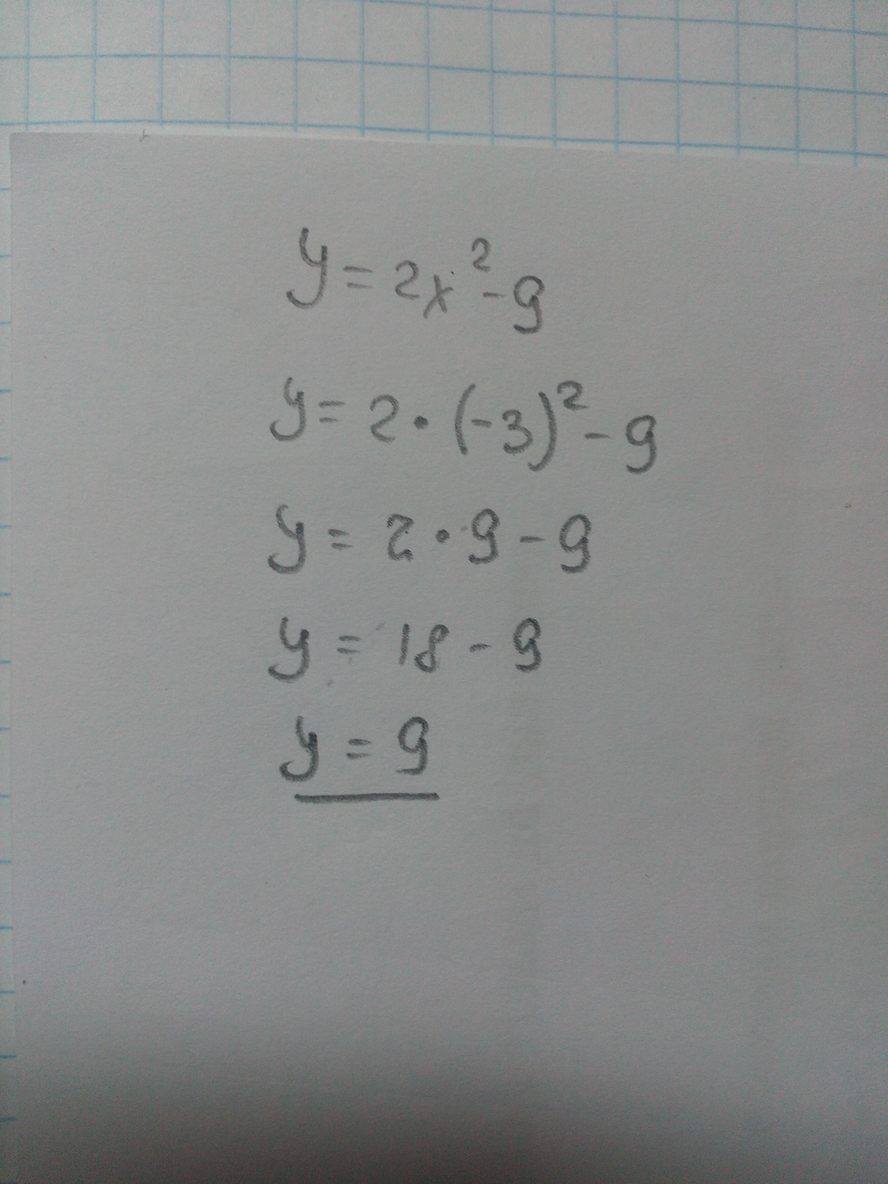 y = 2x² - 9
y = 2 · (-3)² - 9
y = 2 · 9 - 9
y = 18 - 9
y = 9